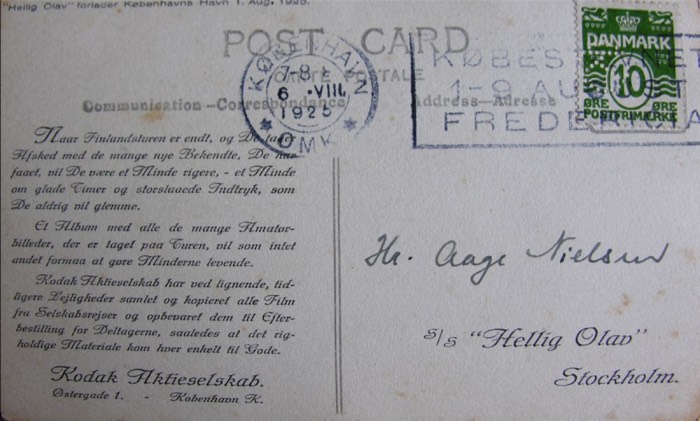 "Hellig Olav" forlader Københavns Havn 1. Aug. 1925.
POST CARD
CARTE POSTALE
Communication - Correspondance
Address - Adresse
KØBENHAVN
7-8
6 . VIII.
1925
* OMK *
1-9 AUGUST
FREDERICIA
DANMARK
10
ØRE ØRE
POSTFRIMÆRKE
Naar Finlandsturen er endt, og De tager
Afsked med de mange nye Bekendte, De har
faaet, vil De være et Minde rigere, - et Minde
om glade Timer og storslaaede Indtryk, som
De aldrig vil glemme.
Et Album med alle de mange Amatør-
billeder, der er taget paa Turen, vil som intet
andet formaa at gøre Minderne levende.
Kodak Aktieselskab har ved lignende, tid-
ligere Lejligheder samlet og kopieret alle Film
fra Selskabsrejser og opbevaret dem til Efter-
bestilling for Deltagerne, saaledes at det rig-
holdige Materiale kom hver enkelt til Gode.
Kodak Aktieselskab.
Østergade 1. - København K.
Hr. Aage Nielsen
s/s "Hellig Olav"
Stockholm.